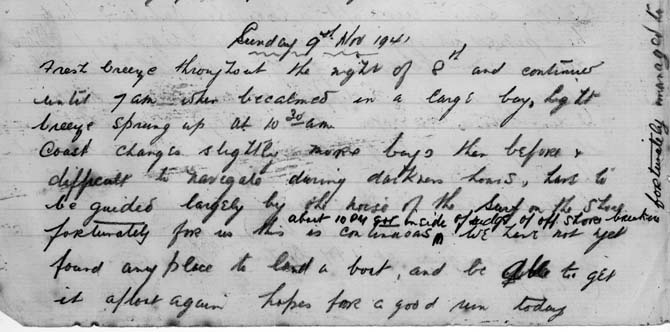 Sunday 9th Nov 1941
Fresh breeze throughout the night of 8th and continued
until 7am when becalmed in a large bay, light
breeze sprung up at 10 30 am
Coast changes slightly more bays then before &
difficult to navigate during darkness hours, have to
be guided largely by the noise of the Surf on the shore
about 10 inside of edge of off shore breakers
fortunately for us this is continuous We have not yet
found any place to land a boat, and be able to get
it afloat again hopes for a good run today
fortunately managed to